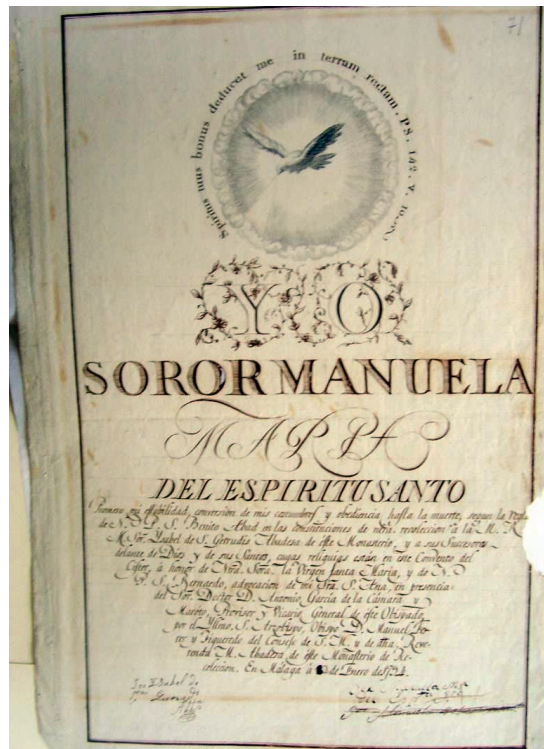 71
Spiritus tuus bonus deducet me in terram rectam. PS. 142. V. 10.
YO
SOROR MANUELA
MARIA
DEL ESPIRITU SANTO
Prometo mi estabilidad, conversion de mis costumbres y obediencia hasta la muerte, segun la Regla
de N. P. S. Benito Abad en las constituciones de ntra. recoleccion a la M. R.
M. Sor Ysabel de S. Gertrudis Abadesa de este Monasterio, y a sus Succesoras
delante de Dios y de sus Santos, cuyas reliquias estan en este Convento del
Cister, à honor de Ntra. Sora. la Virgen Santa Maria, y de N.
P. S. Bernardo, advocacion de mi Sra. S. Ana, en presencia
del Sor. Doctor D. Antonio Garcia de la Camara y
Provisor y Vicario General de este Obispado,
por el Yllmo. S. Arzobispo, Obispo D. Manuel
y Figueredo del Consejo de S. M. y de dha. Reve-
renda M. Abadesa de este Monasterio de Re-
coleccion. En Málaga à de Enero de
Sor Ysabel de